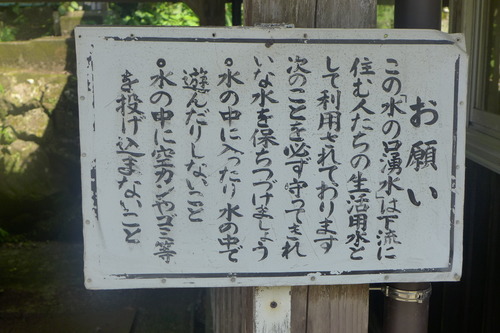 お願い
この「水の口湧水」は下流に
住む人たちの生活用水と
して利用されております
次のことを必ず守ってきれ
いな水を保ちつづけましょう
。水の中に入ったり水の中で
遊んだりしないこと
。水の中に空カンやゴミ等
を投げ込まないこと